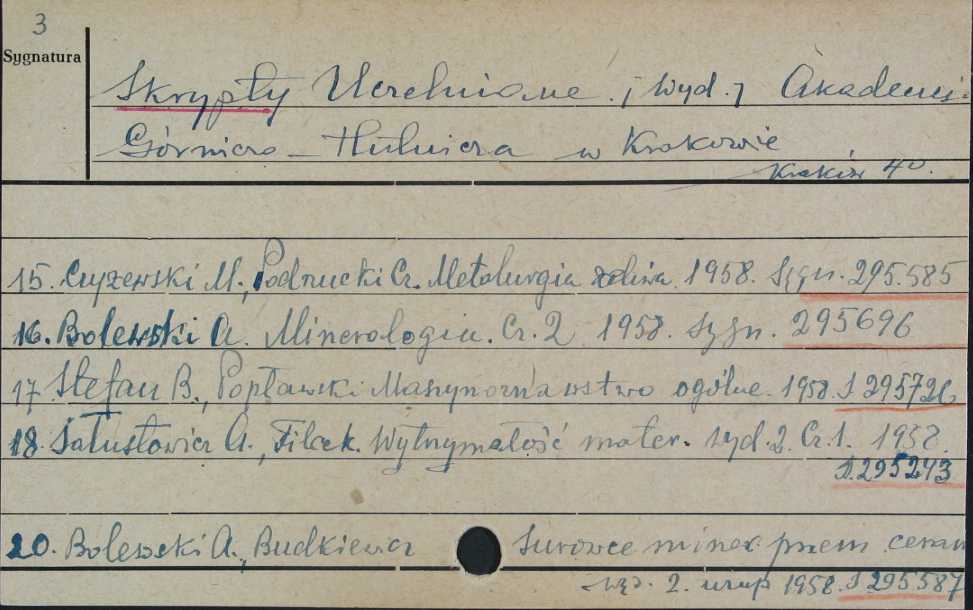 3
Sygnatura
Skrypty Uczelniane. / Wyd. / Akademi-
Górniczo – Hutnicza w Krakowie
Kraków 40.
15. Czyżewski M., Podrzucki Cz. Metalurgia żeliwa. 1958. Sygn. 295.585
16. Bolewski A. Mineralogia. Cz. 2 1958. Sygn. 295696
17 Stefan B., Popławski Maszynoznawstwo ogólne. 1958. S 295726
18. Sałustowicz A., Filcek. Wytrzymałość mater. wyd. 2. Cz. 1. 1958.
S. 295243
20. Bolewski A., Budkiewicz Surowce miner. przem ceram
wyd. 2. uzup 1958. S 295587